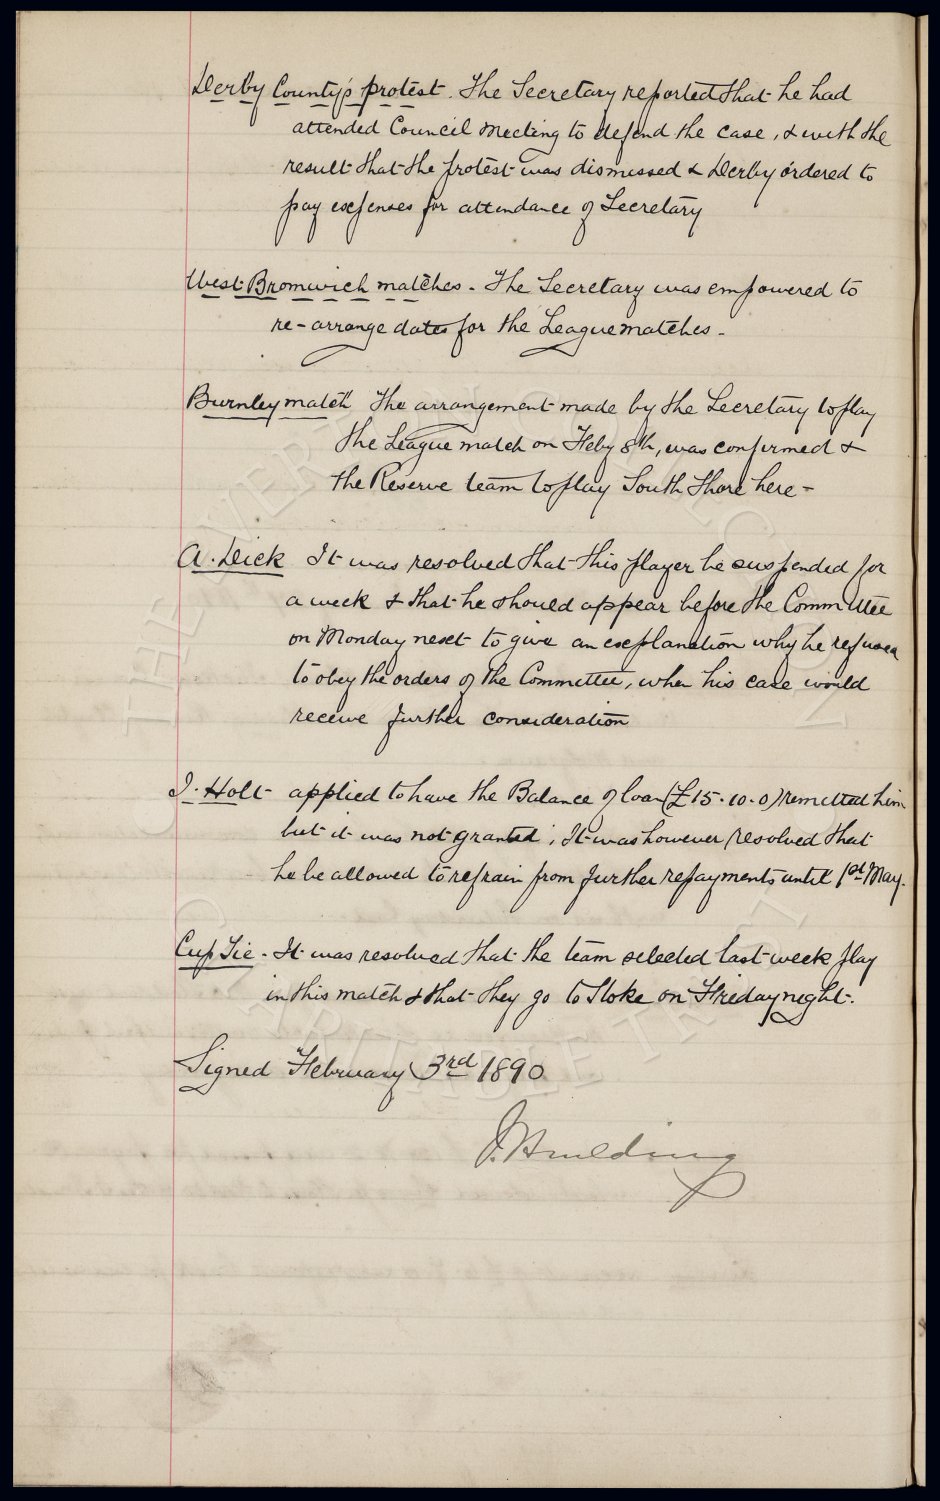 Derby County's protest. The Secretary reported that he had
attended Council Meeting to defend the case, & with the
result that the protest was dismissed & Derby ordered to
pay expenses for attendance of Secretary
West Bromwich matches - The Secretary was empowered to
re-arrange dates for the League matches -
Burnley match The arrangement made by the Secretary to play
the League match on Feby 8th, was confirmed &
the Reserve team to play South Shore here -
A. Dick It was resolved that this player be suspended for
a week & that he should appear before the Committee
on Monday next to give an explanation why he refused
to obey the orders of the Committee, when his case would
receive further consideration
J. Holt applied to have the Balance of loan (£15.10.0) remitted him
but it was not granted; It was however resolved that
he be allowed to refrain from further repayments until 1st May.
Cup Tie - It was resolved that the team selected last week play
in this match & that they go to Stoke on Friday night.
Signed February 3rd 1890
J. Houlding
THE EVERTON COLLECTION
CHARITABLE TRUST